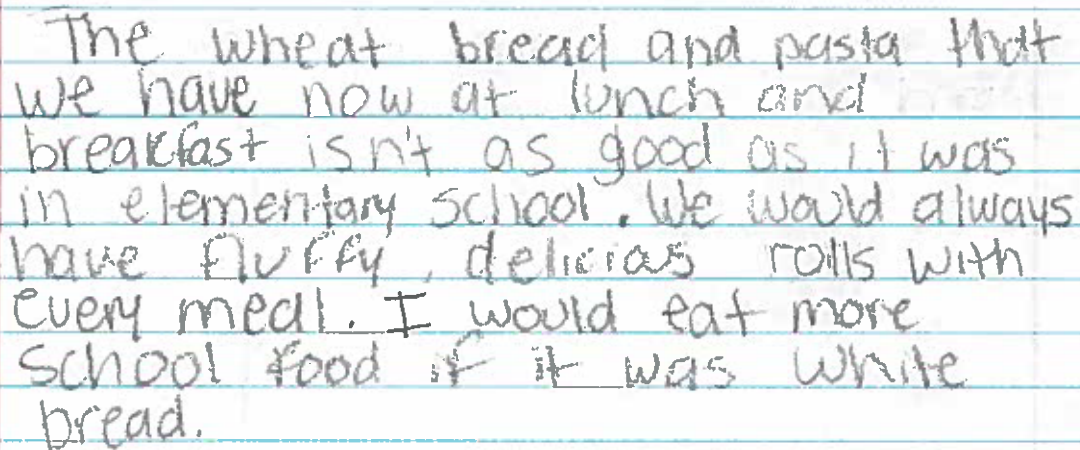 The wheat bread and pasta that
we have now at lunch and
breakfast isn't as good as it was
in elementary school. We would always
have fluffy, delicias rolls with
every meal. I would eat more
school food if it was white
bread.